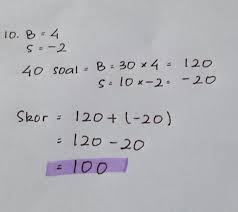 10. B = 4
S = -2
40 soal = B = 30 x 4 = 120
S = 10 x -2 = -20
Skor = 120 + (-20)
= 120 - 20
= 100